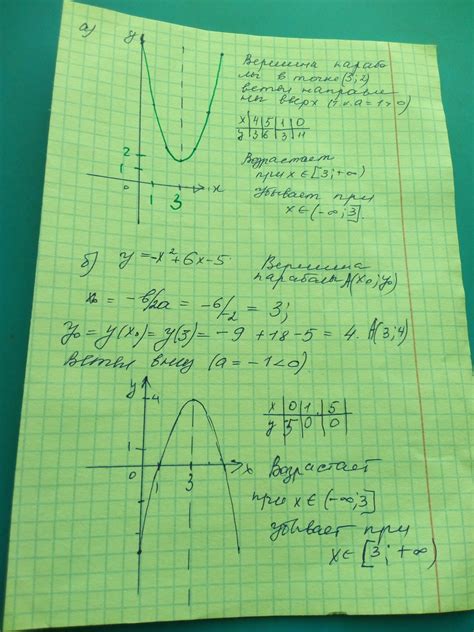 а)
y
Вершина парабо
лы в точке (3;2)
ветви направле
ны вверх (т.к. a=1>0)
x 4 5 1 0
y 3 6 3 11
Возрастает
при x∈[3;+∞)
Убывает при
x∈(-∞;3].
2
1
0 1 3 x
б) y=-x²+6x-5 Вершина
параболы A(x₀;y₀)
x₀ = -b/2a = -6/-2 = 3;
y₀ = y(x₀) = y(3) = -9 + 18 - 5 = 4. A(3;4)
Ветви вниз (a = -1<0)
y 4
1
0 1 3 x
x 0 1 5
y 5 0 0
Возрастает
при x∈(-∞;3]
Убывает при
x∈[3;+∞)